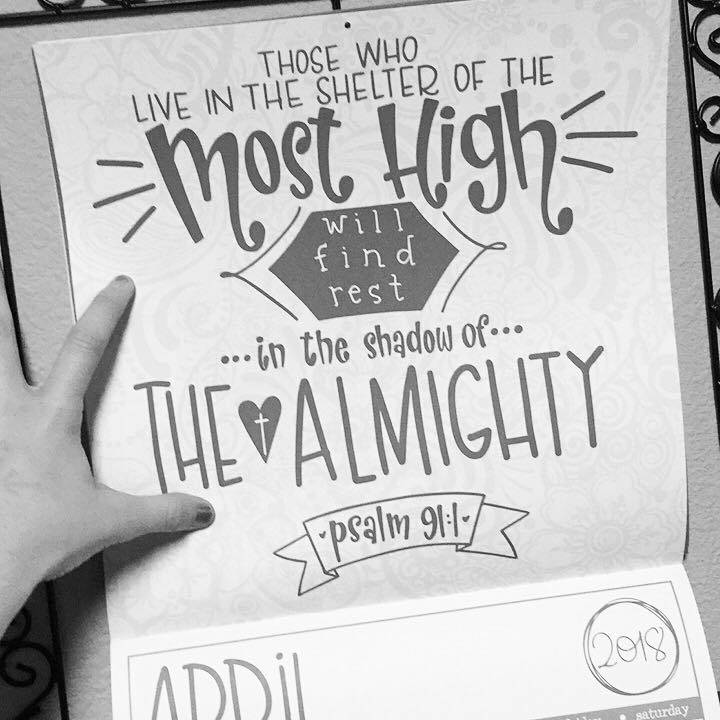 THOSE WHO
LIVE IN THE SHELTER OF THE
most High
will
find
rest
...in the shadow of...
THE ALMIGHTY
psalm 91:1
APRil
2018
saturday